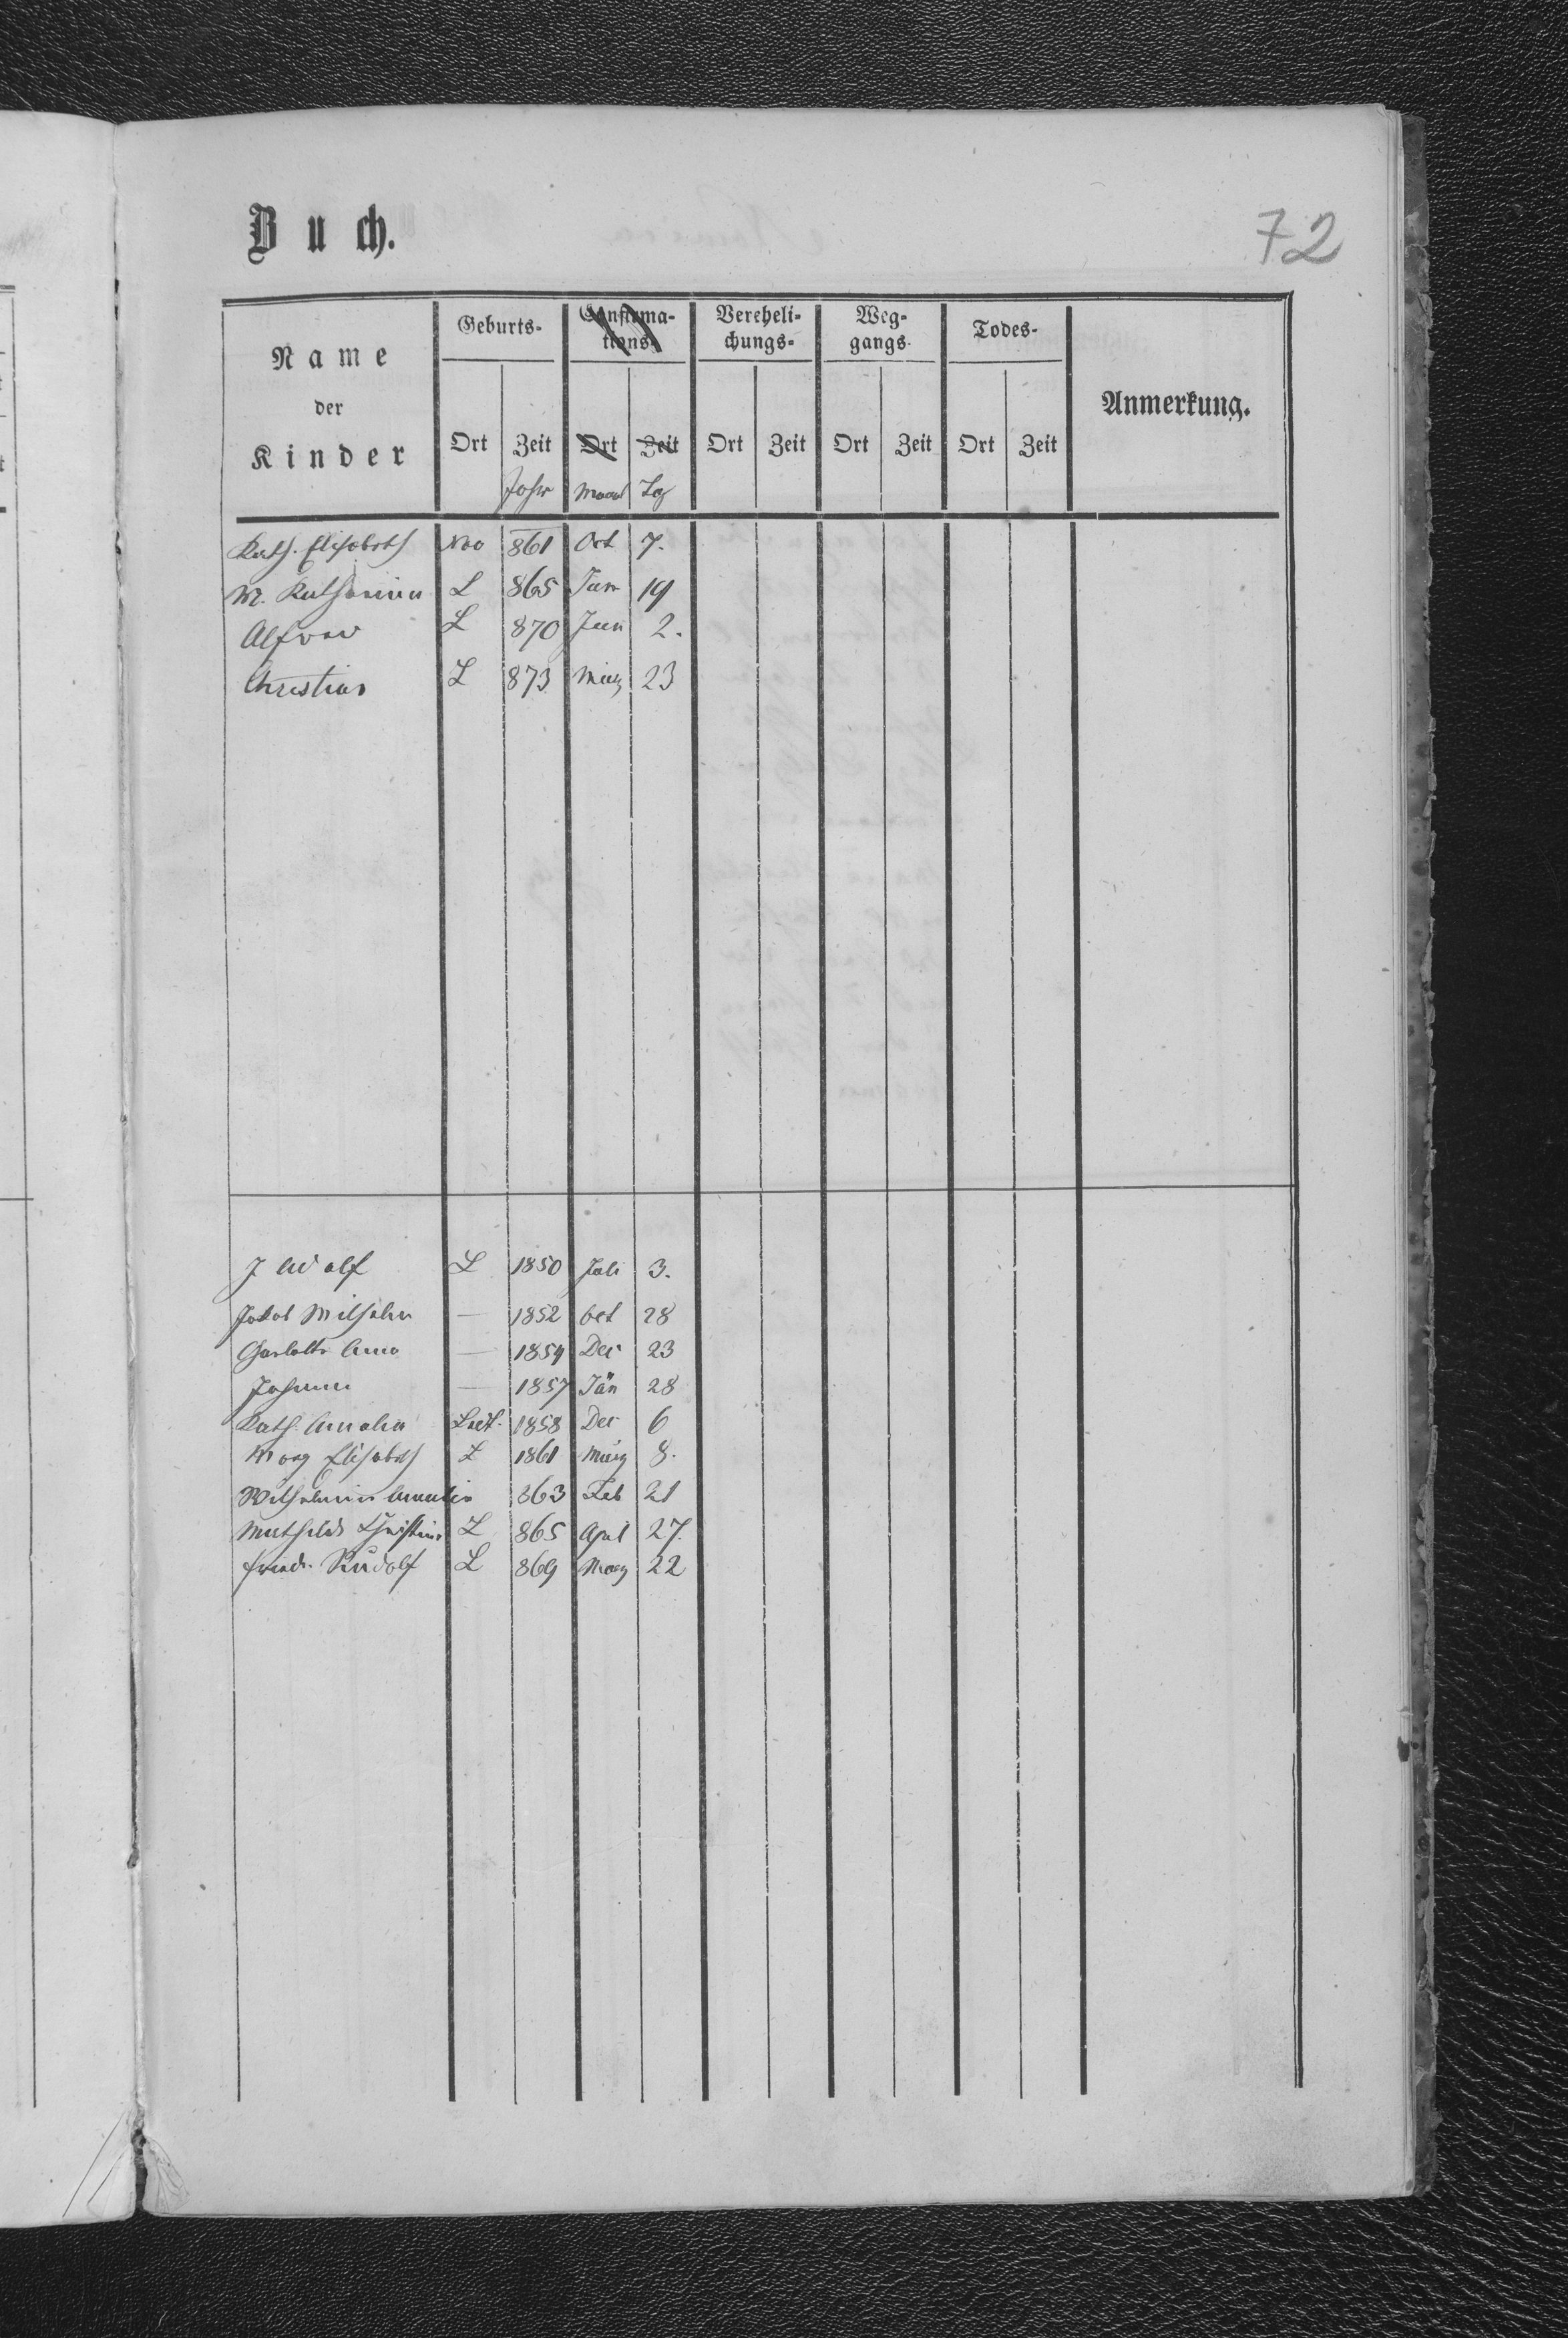 Buch.
72
Name der Kinder
Geburts-
Confirma-
tions-
Vereheli-
chungs-
Weg-
gangs-
Todes-
Anmerkung.
Ort Zeit Ort Zeit Ort Zeit Ort Zeit Ort Zeit
Jahr Monat Tag
Kath. Elisabeth 861 Oct 7.
M. Katharina L 865 Jun 19
Alfred L 870 Jun 2.
Christian L 873 März 23
J Adolf L 1850 Juli 3.
Jakob Wilhelm — 1852 Oct 28
Charlotte Anna — 1854 Dec 23
Johann — 1857 Jän 28
Kath. Amalia 1858 Dec 6
Marg Elisabeth L 1861 März 8.
Wilhelmine Amalia 863 Feb 21
Mathilde Christine L 865 April 27.
Friedr. Rudolf L 869 März 22